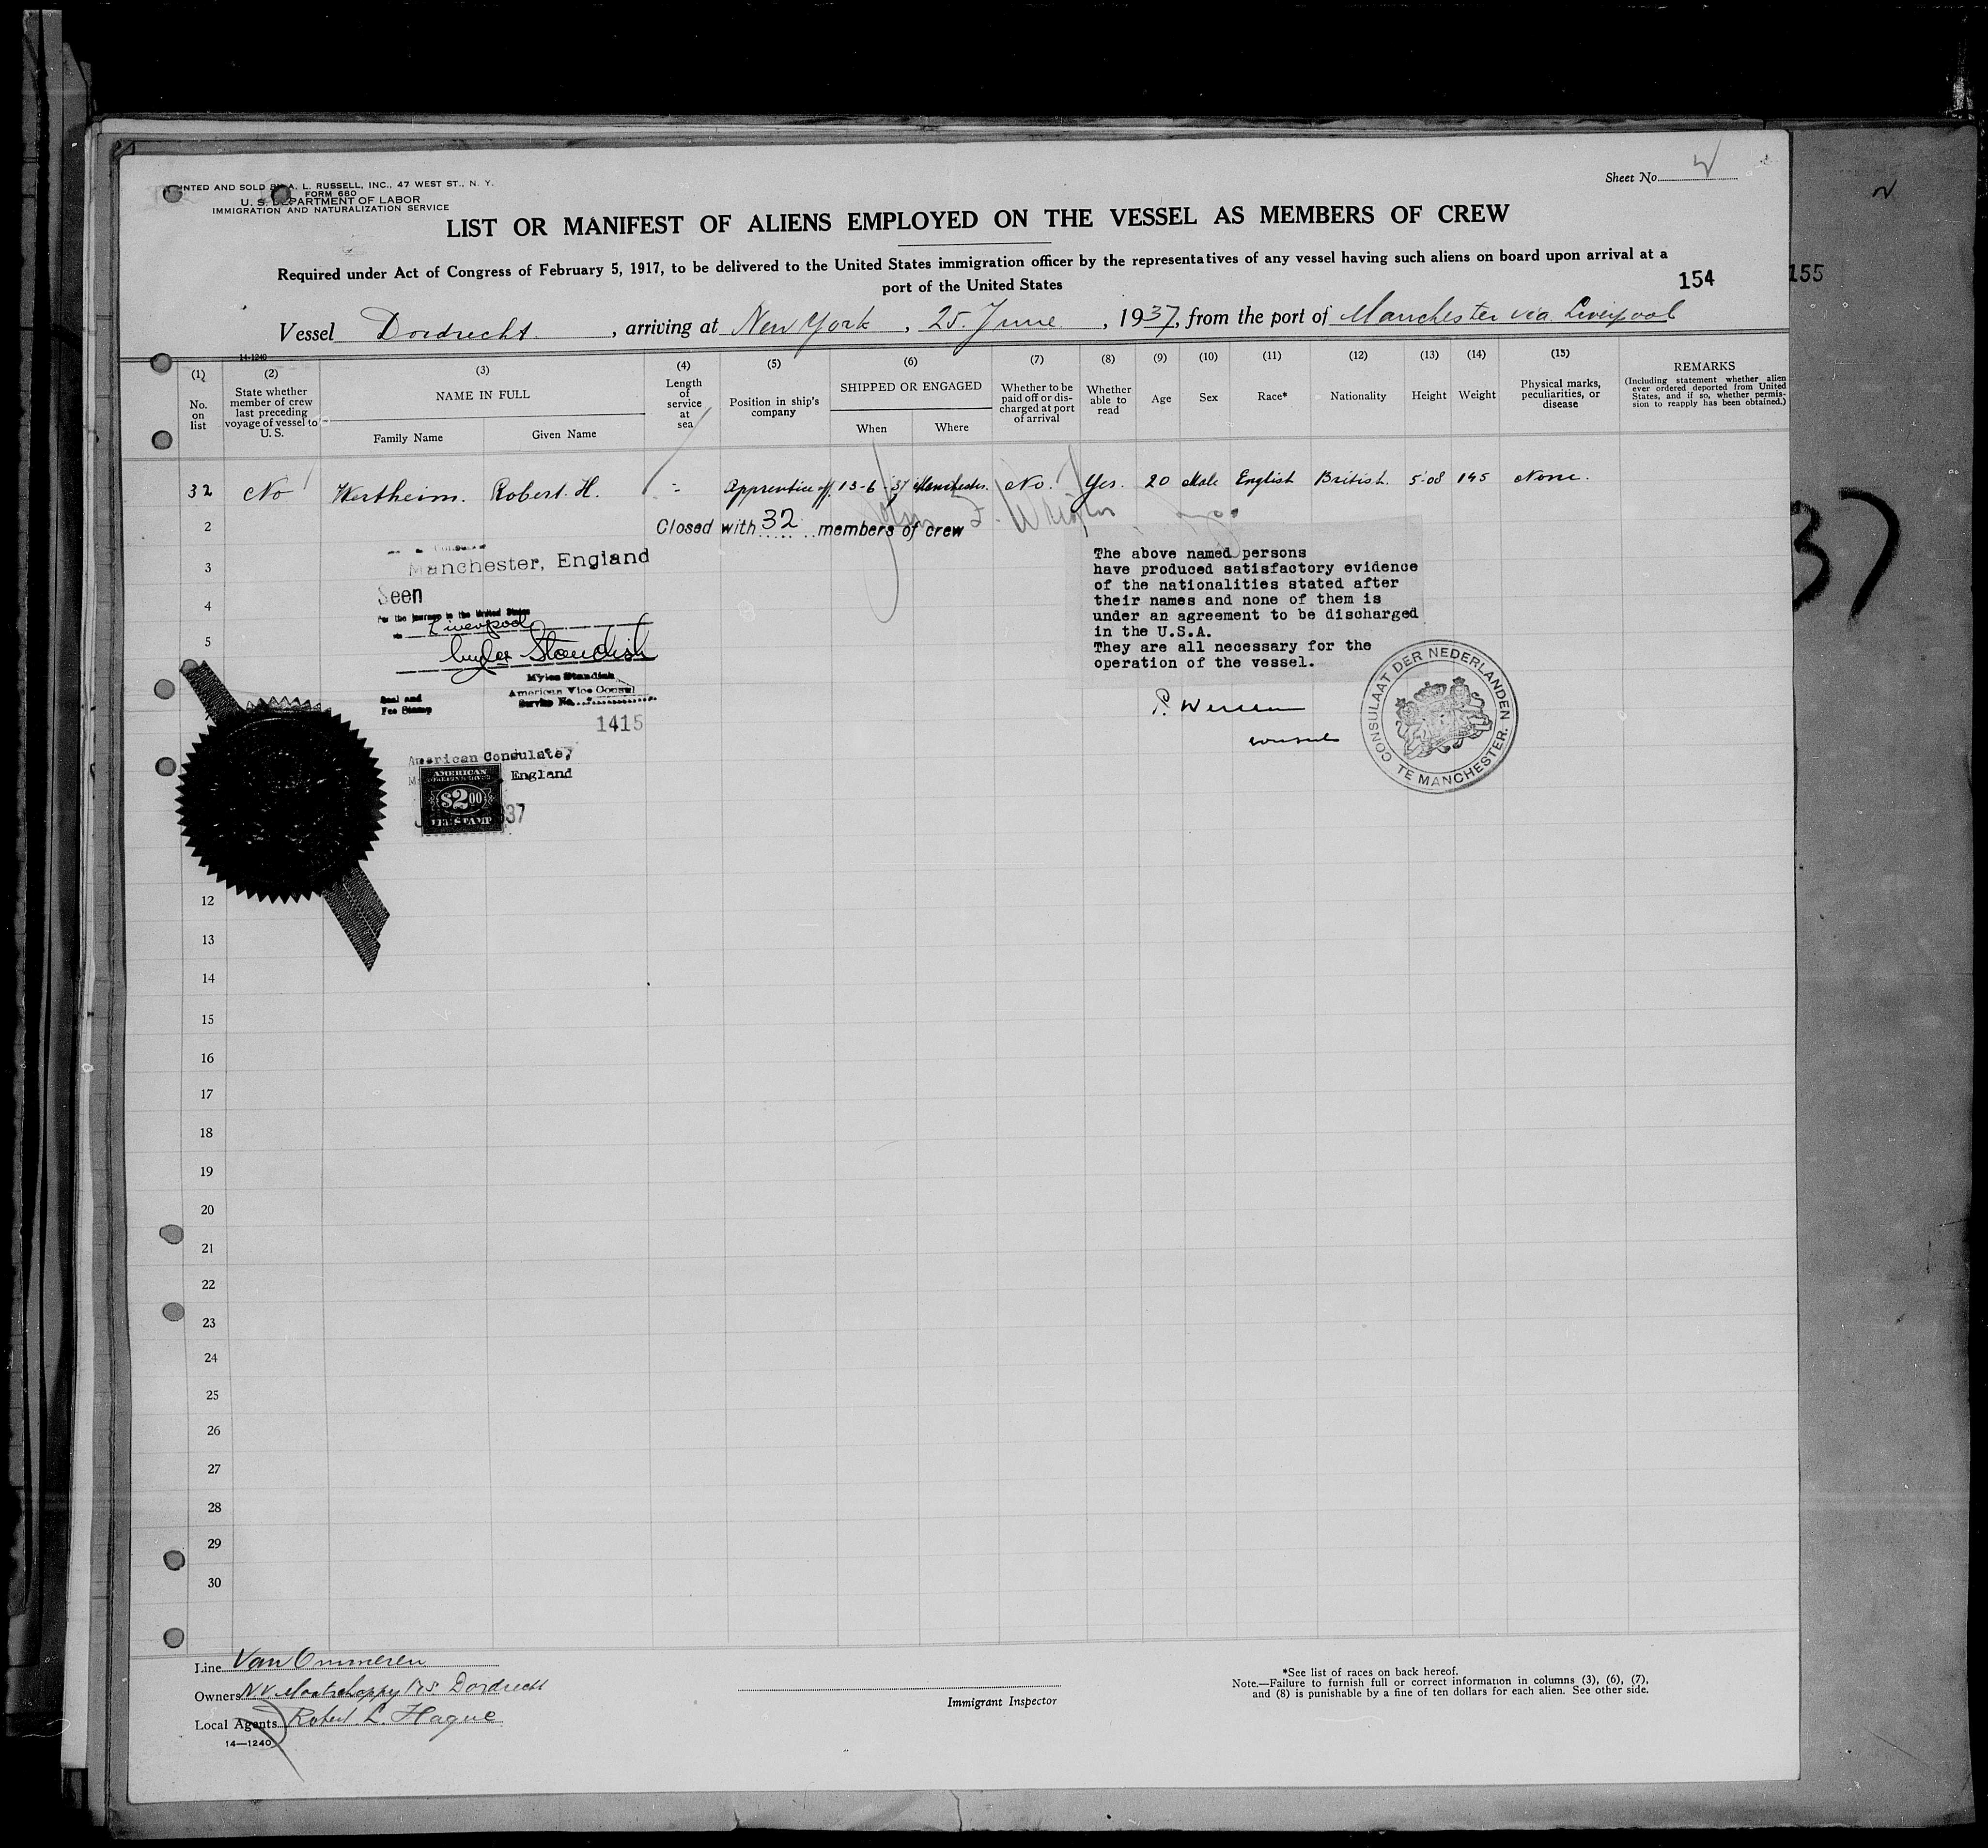 PRINTED AND SOLD BY A. L. RUSSELL, INC., 47 WEST ST., N. Y.
FORM 680
U. S. DEPARTMENT OF LABOR
IMMIGRATION AND NATURALIZATION SERVICE
Sheet No. 2
LIST OR MANIFEST OF ALIENS EMPLOYED ON THE VESSEL AS MEMBERS OF CREW
Required under Act of Congress of February 5, 1917, to be delivered to the United States immigration officer by the representatives of any vessel having such aliens on board upon arrival at a
port of the United States
154
155
Vessel Dordrecht, arriving at New York, 25. June, 1937, from the port of Manchester via Liverpool
14-1240
(1) No. on list
(2) State whether member of crew last preceding voyage of vessel to U. S.
(3) NAME IN FULL
Family Name
Given Name
(4) Length of service at sea
(5) Position in ship's company
(6) SHIPPED OR ENGAGED
When
Where
(7) Whether to be paid off or discharged at port of arrival
(8) Whether able to read
(9) Age
(10) Sex
(11) Race*
(12) Nationality
(13) Height
(14) Weight
(15) Physical marks, peculiarities, or disease
REMARKS
(Including statement whether alien ever ordered deported from United States, and if so, whether permission to reapply has been obtained.)
32 No Wertheim. Robert. H. - Apprentice off. 13-6-37 Manchester. No. Yes. 20 Male English British. 5-08 145 None.
2
Closed with 32 members of crew
3
4
5
Manchester, England
Seen
For the journey to the United States
via Liverpool
Myles Standish
Myles Standish
American Vice Consul
Service No.
Seal and
Fee Stamp
1415
American Consulate,
England
AMERICAN
$2.00
FEE STAMP
37
The above named persons
have produced satisfactory evidence
of the nationalities stated after
their names and none of them is
under an agreement to be discharged
in the U.S.A.
They are all necessary for the
operation of the vessel.
consul
CONSULAAT DER NEDERLANDEN TE MANCHESTER.
37
12
13
14
15
16
17
18
19
20
21
22
23
24
25
26
27
28
29
30
Line Van Ommeren
Owners N.V. Maatschappy s.s. Dordrecht
Local Agents Robert. L. Hague
14—1240
Immigrant Inspector
*See list of races on back hereof.
Note.—Failure to furnish full or correct information in columns (3), (6), (7),
and (8) is punishable by a fine of ten dollars for each alien. See other side.